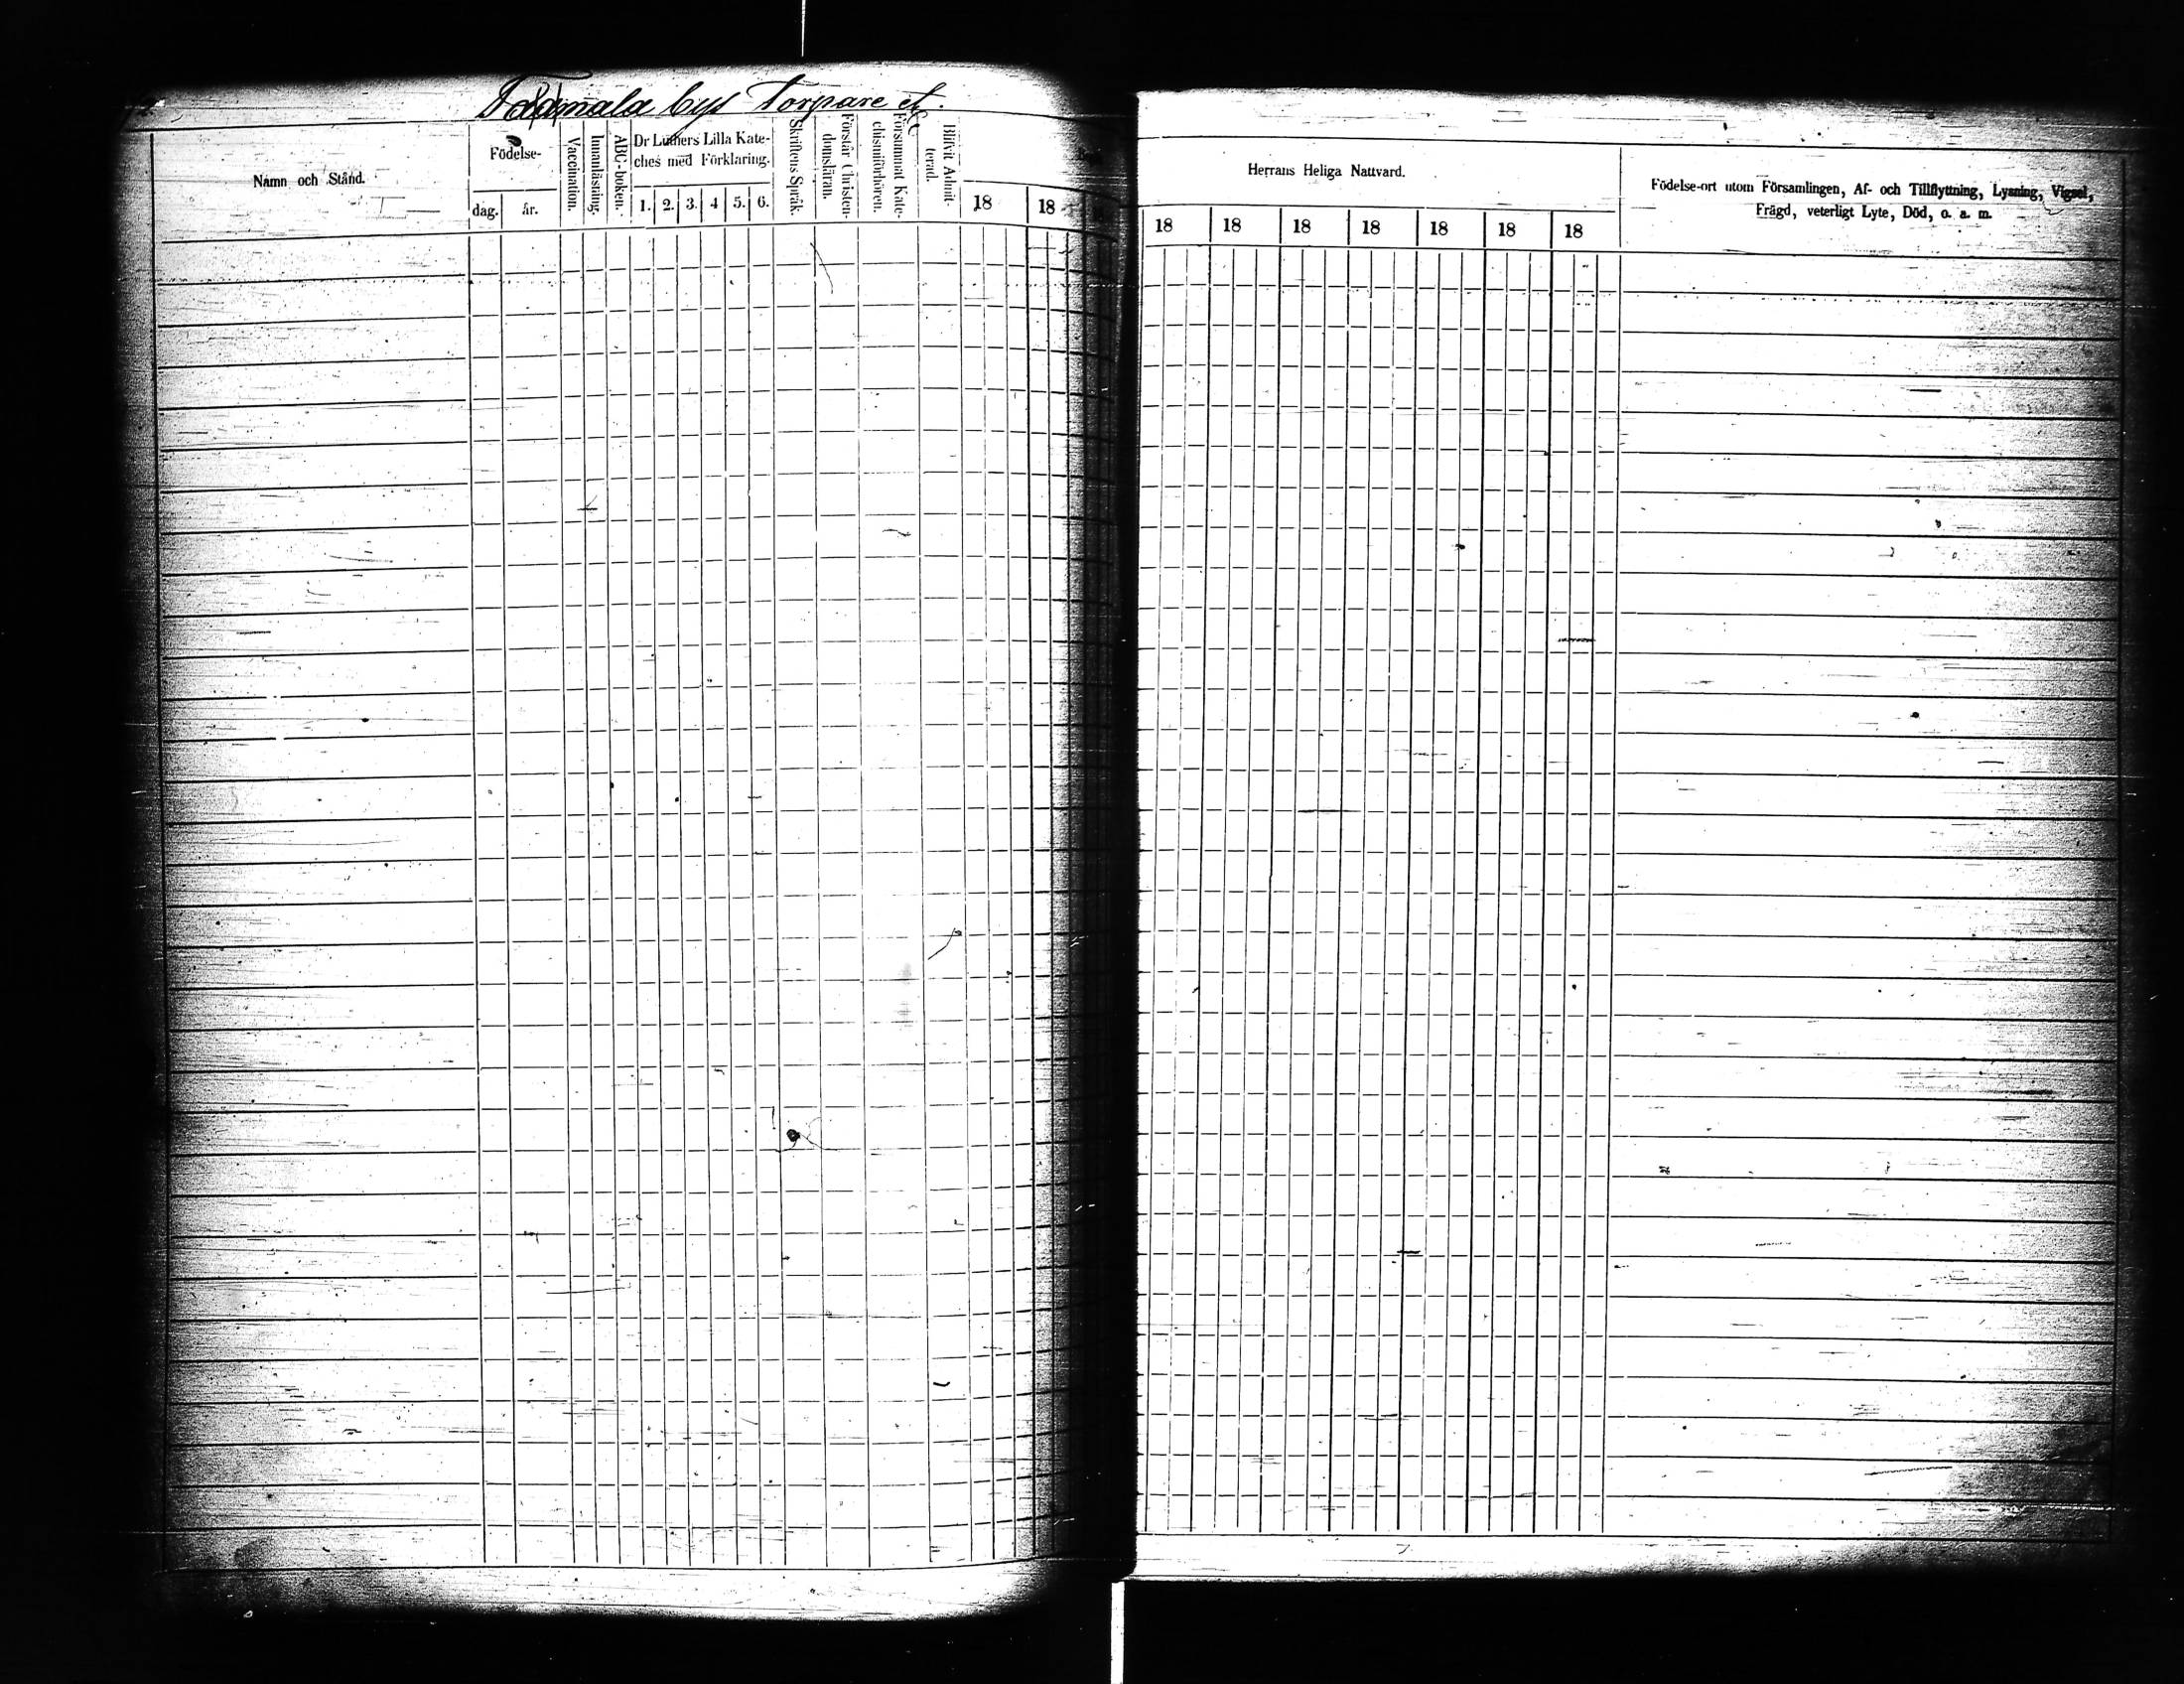 bys Torpare
Namn och Stånd.
Födelse-
dag.
år.
Vaccination.
Innanläsning.
ABC-boken.
Dr Luthers Lilla Kate-
ches med Förklaring.
1. 2. 3. 4 5. 6.
Skriftens Språk.
Förstår Christen-
domsläran.
Försummat Kate-
chismiförhören.
Blifvit Admit-
terad.
18 18
Herrans Heliga Nattvard.
18 18 18 18 18 18 18
Födelse-ort utom Församlingen, Af- och Tillflyttning, Lysning, Vigsel,
Frägd, veterligt Lyte, Död, o. a. m.